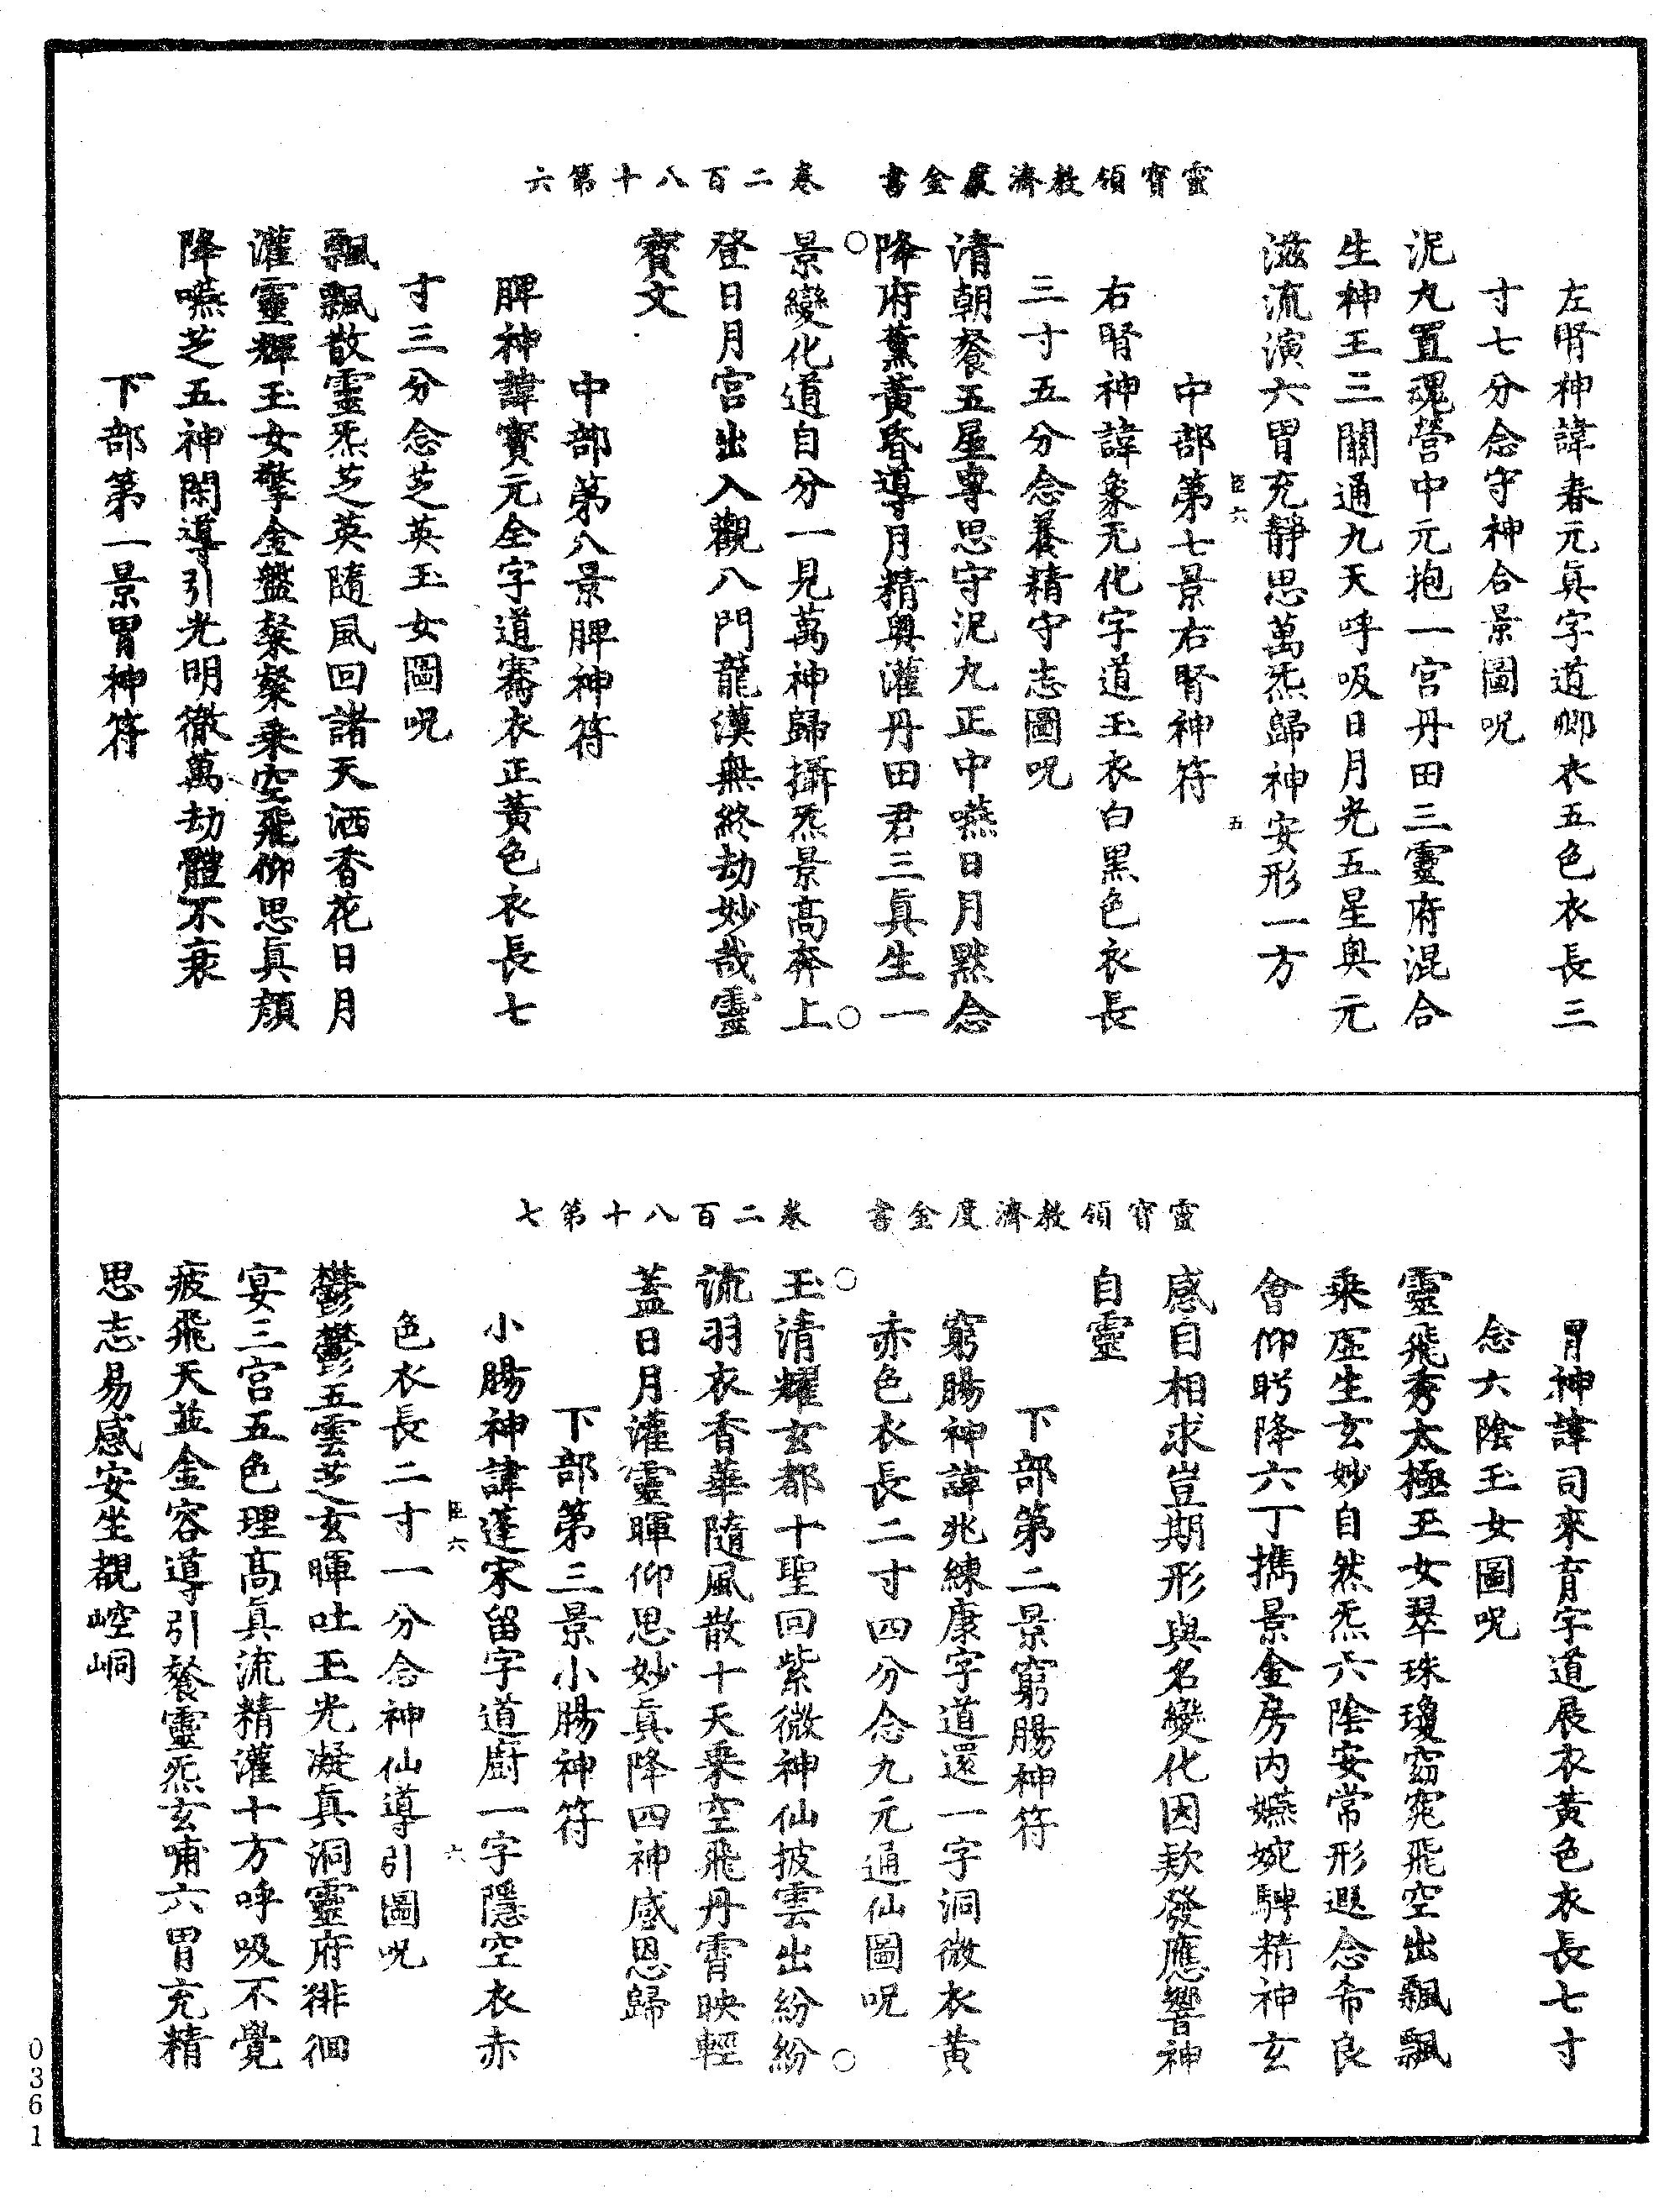 靈寶領教濟度金書　卷二百八十第六
左腎神諱春元眞字道卿衣五色衣長三
寸七分念守神合景圖呪
泥丸置魂營中元抱一宮丹田三靈府混合
生神王三關通九天呼吸日月光五星奥元
滋流演六胃充靜思萬炁歸神安形一方
臣六　五
中部第七景右腎神符
右腎神諱象无化字道玉衣白黑色衣長
三寸五分念養精守志圖呪
清朝餐五星專思守泥丸正中嚥日月黙念
降府薰黃昏導月精奥灌丹田君三眞生一
景變化道自分一見萬神歸攝炁景高奔上
登日月宮出入觀八門龍漢無終劫妙哉靈
寳文
中部第八景脾神符
脾神諱寳元全字道騫衣正黃色衣長七
寸三分念芝英玉女圖呪
飄飄散靈炁芝英隨風回諸天洒香花日月
灌靈輝玉女擎金盤粲粲乘空飛仰思眞顏
降嚥芝五神閑導引光明徹萬劫體不衰
下部第一景胃神符
靈寶領教濟度金書　卷二百八十第七
胃神諱司來育字道展衣黃色衣長七寸
念六陰玉女圖呪
靈飛秀太極玉女翠珠瓊窈窕飛空出飄飄
乘虛生玄妙自然炁六陰安常形遐念希良
會仰眄降六丁擕景金房内嬿婉騁精神玄
感自相求豈期形與名變化因欻發應響神
自靈
下部第二景窮腸神符
窮腸神諱兆練康字道還一字洞微衣黃
赤色衣長二寸四分念九元通仙圖呪
玉清耀玄都十聖回紫微神仙披雲出紛紛
流羽衣香華隨風散十天乘空飛丹霄映輕
蓋日月灌靈暉仰思妙眞降四神感恩歸
下部第三景小腸神符
小腸神諱蓬宋留字道廚一字隱空衣赤
臣六　六
色衣長二寸一分念神仙導引圖呪
鬱鬱五雲芝玄暉吐玉光凝眞洞靈府徘徊
宴三宮五色理高眞流精灌十方呼吸不覺
疲飛天並金容導引餐靈炁玄哺六胃充精
思志易感安坐觀崆峒
0361